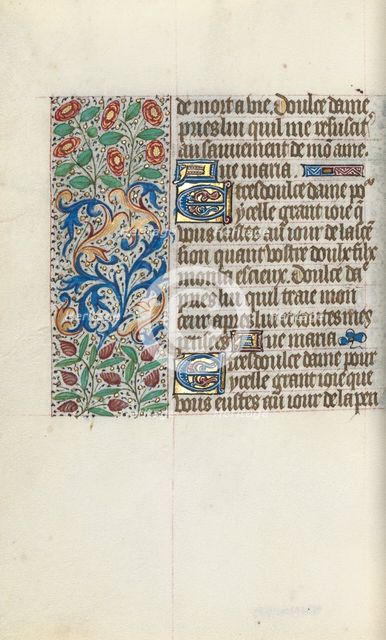 de mort a vie. Doulce dame
pries lui quil me resuscit
au sauuement de mō ame.
Aue maria
E tresdoulce dame po͛
ycelle grant ioie q̄
vous eustes au iour de lascē
sion quant vostre doulx filz
monta es cieux. Doulce da
pries lui quil traie mon
cueur apres lui et toutes mes
pensees Aue maria
E tresdoulce dame pour
ycelle grant ioie que
vous eustes au iour de la pen